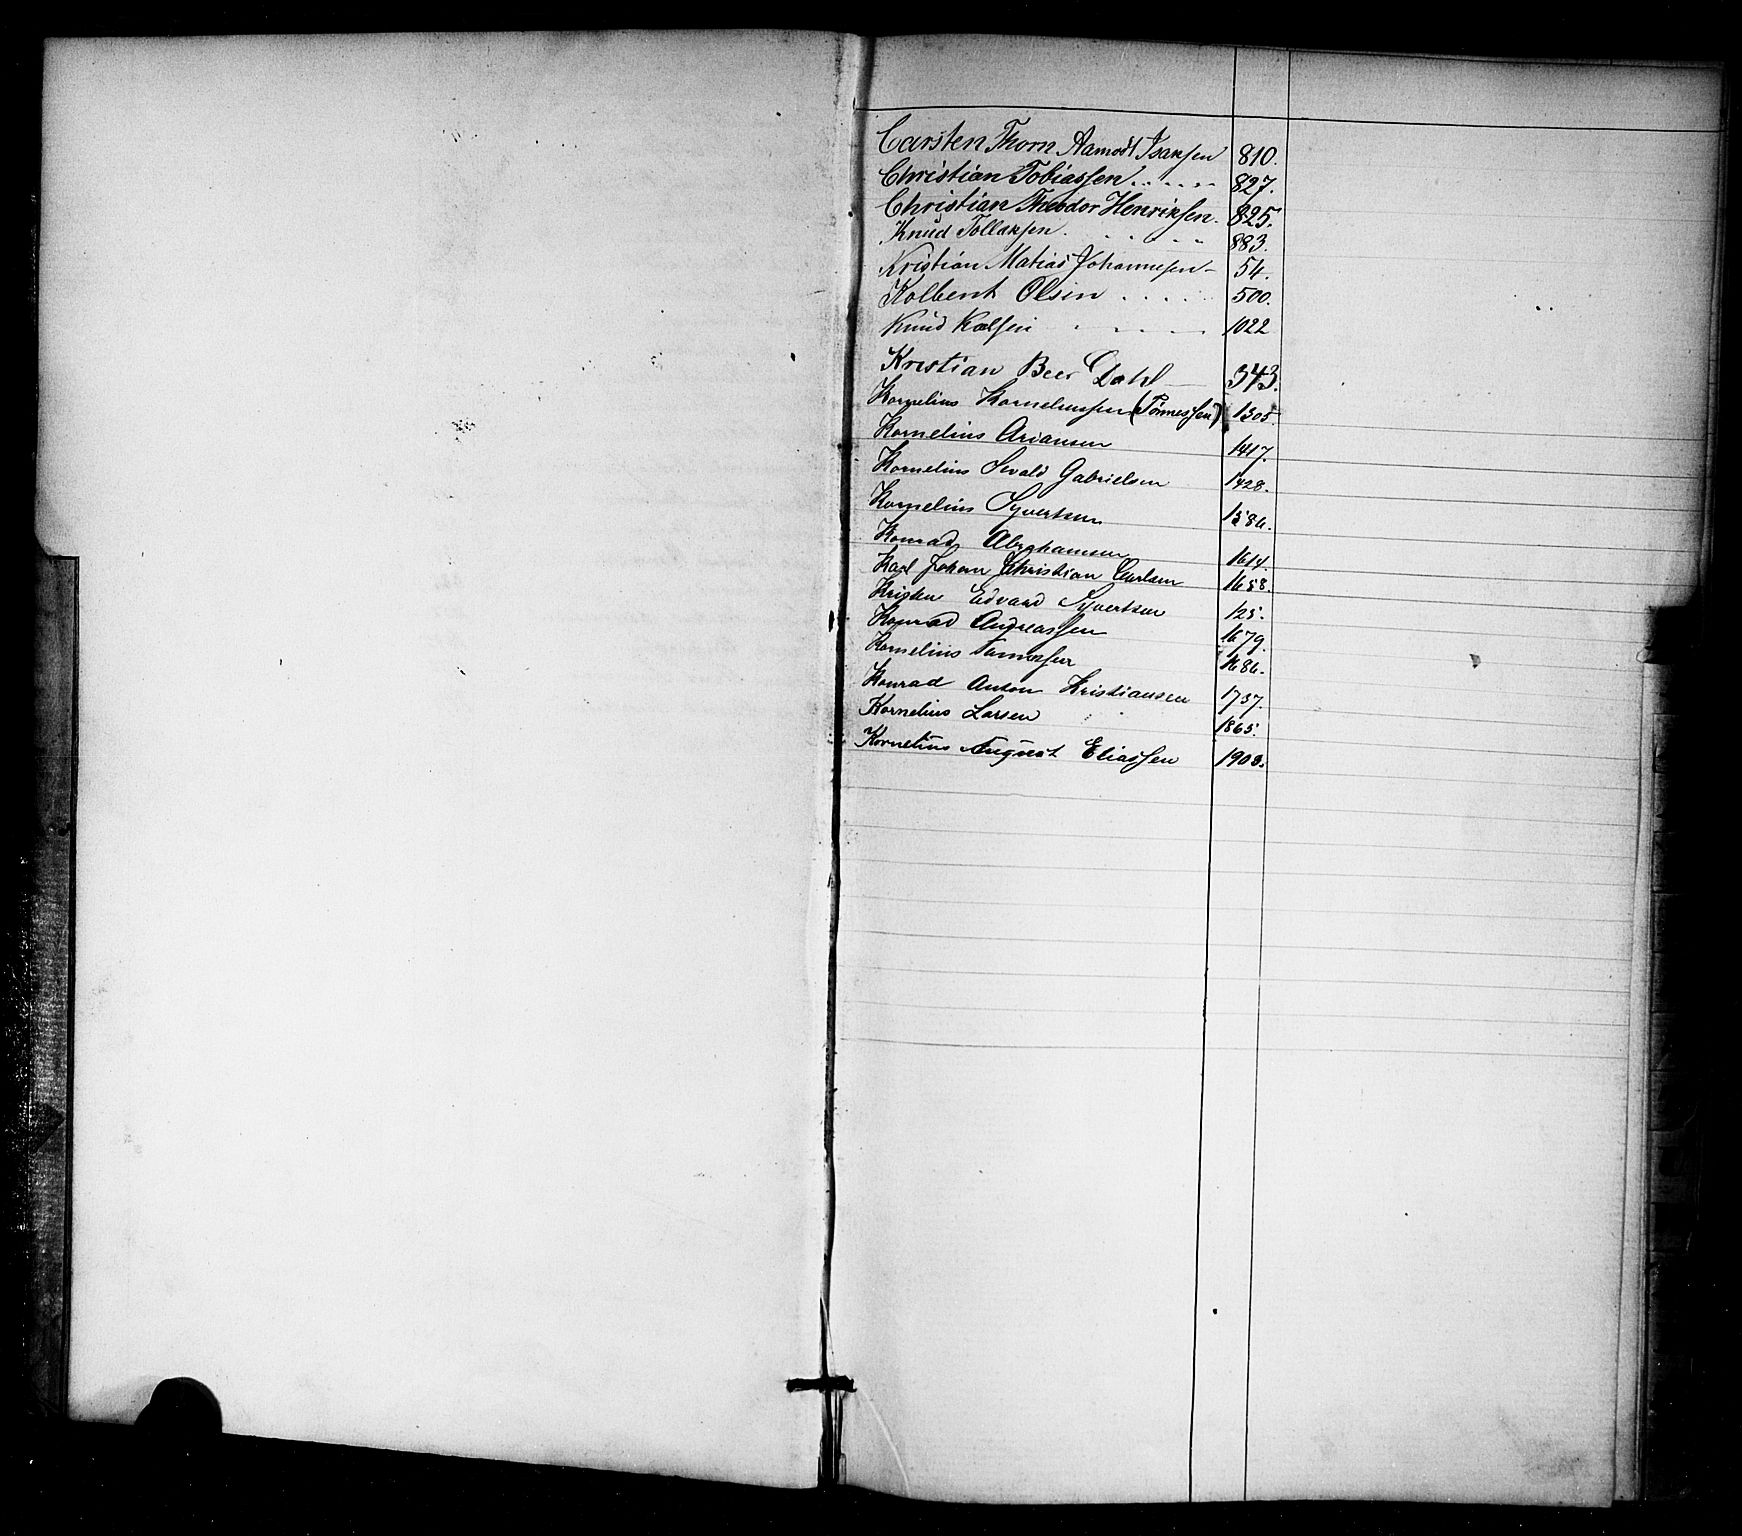 Carsten Thorn Aamodt Isaksen 810.
Christian Tobiassen 827.
Christian Theodor Henriksen. 825.
Knud Tollaksen. 883.
Kristian Matias Johannesen 54.
Kolbent Olsen 500.
Knud Kalsen 1022
Kristian Beer Dahl 343.
Kornelius Korneliussen (Tønnessen) 1305.
Kornelius Ariansen 1417.
Kornelius Sevald Gabrielsen 1428.
Kornelius Syvertsen 1586.
Konrad Abrahamsen 1614.
Karl Johan Christian Carlsen 1658.
Kristen Edvard Syvertsen 125.
Konrad Andreassen 1679.
Kornelius 1686.
Konrad Anton Kristiansen 1737.
Kornelius Larsen 1865.
Kornelius August Eliassen 1908.